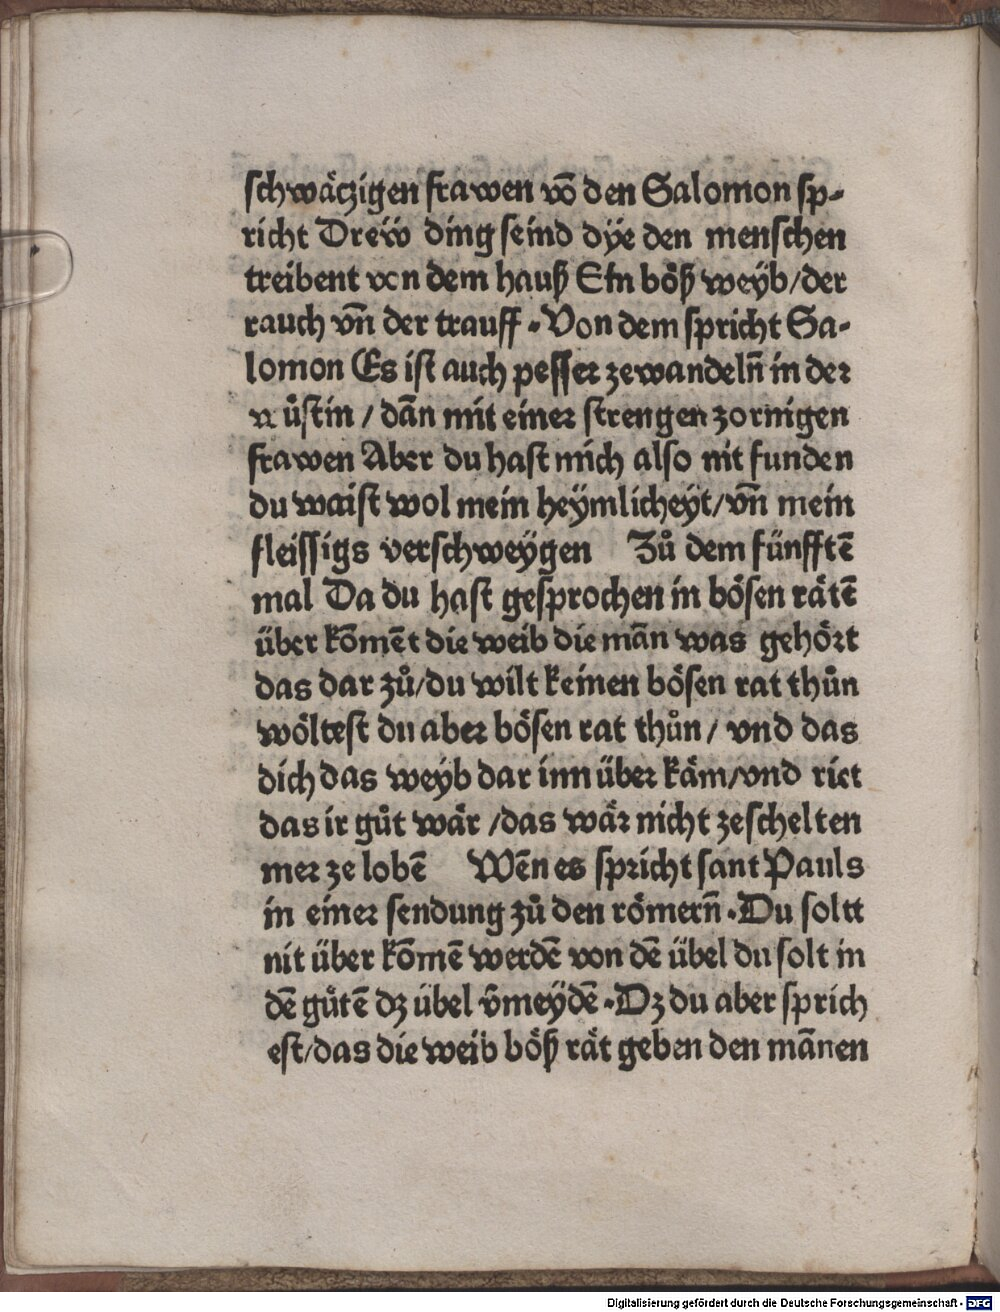 schwätzigen frawen võ den Salomon sp-
richt Dreẅ ding seind dÿe den menschen
treibent von dem hauß Ein böß weÿb/der
rauch vñ der trauff . Von dem spricht Sa-
lomon Es ist auch pesser zewandelñ in der
wůstin / dãn mit einer strengen zornigen
frawen Aber du hast mich also nit funden
du waist wol mein heÿmlicheyt/vñ mein
fleissigs verschweÿgen Zů dem fünfftẽ
mal Da du hast gesprochen in bösen rätẽ
über kõmẽt die weib die mãn was gehört
das dar zů/du wilt keinen bösen rat thůn
wöltest du aber bösen rat thůn/ vnd das
dich das weÿb dar inn über käm/vnd riet
das ir gůt wär /das wär nicht zeschelten
mer ze lobẽ Wẽn es spricht sant Pauls
in einer sendung zů den römerñ . Du soltt
nit über kõmẽ werdẽ von dẽ übel du solt in
dẽ gůtẽ dz übel v̄meÿdẽ . Dz du aber sprich
est/das die weib böß rät geben den mãnen
Digitalisierung gefördert durch die Deutsche Forschungsgemeinschaft - DFG